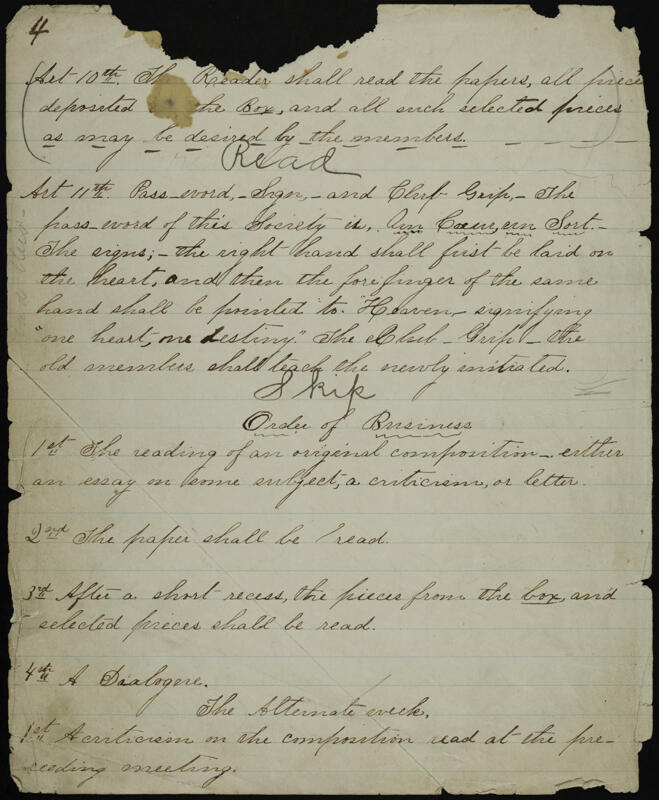 4
Art 10th. The Reader shall read the papers, all pieces
deposited the Box, and all such selected pieces
as may be desired by the members.
Read
Art 11th. Pass-word, - Sign, - and Club Grip, - The
pass-word of this Society is, Un Cœur, un Sort. -
The signs; - the right hand shall first be laid on
the heart, and then the forefinger of the same
hand shall be pointed to "Heaven - signifying
"one heart, one destiny." The Club - Grip - the
old members shall teach the newly initiated.
Skip
Order of Business
1st The reading of an original composition - either
an essay on some subject, a criticism, or letter.
2nd The paper shall be read.
3rd After a short recess, the pieces from the box, and
selected pieces shall be read.
4th A Dialogue.
The Alternate week.
1st A criticism on the composition read at the pre-
ceeding meeting.